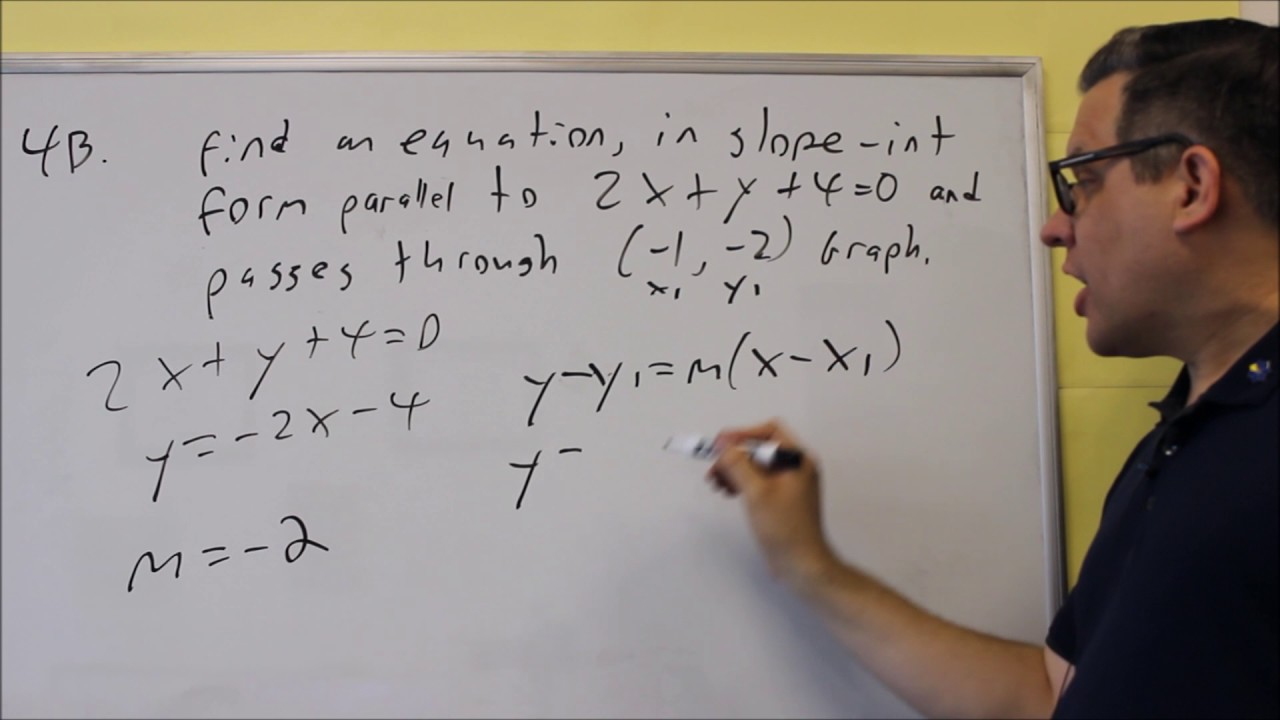 4B. Find an equation, in slope-int
form parallel to 2x+y+4=0 and
passes through (-1, -2) Graph.
x₁ y₁
2x+y+4=0
y=-2x-4
m=-2
y-y₁=m(x-x₁)
y-